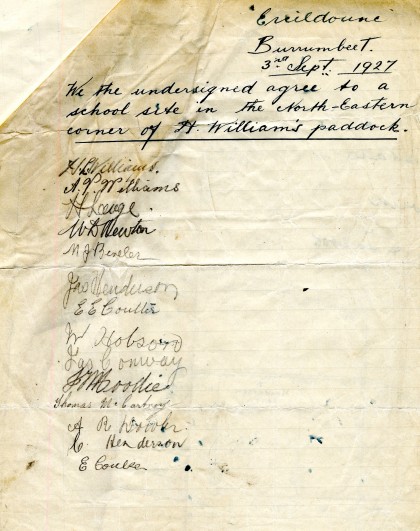 Ercildoune
Burrumbeet.
3rd Sept. 1927
We the undersigned agree to a
school site in the North-Eastern
corner of H. William's paddock.
H Williams.
A. P. Williams
H Lange.
W D Newton
M J
Jas Henderson
E E Coulter
W Hobson
Jas Conway
J Moodie
Thomas McCartney
A R
C. Henderson
E Coulter